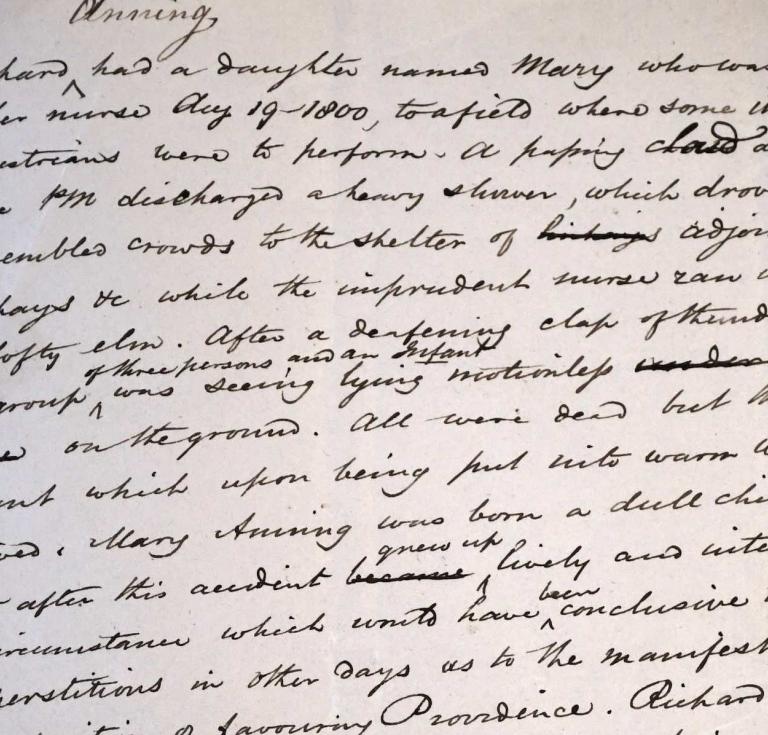 Anning
hard ^ had a daughter named Mary who was
er nurse Aug 19-1800, to a field where some
estrians were to perform. A passing cloud a
PM discharged a heavy shower, which drov
embled crowds to the shelter of adjoi
hays &c while the imprudent nurse ran
lofty elm. After a deafening clap of thund
of three persons and an Infant
group ^ was seeing lying motionless under
on the ground. All were dead but th
ant which upon being put into warm w
ved. Mary Anning was born a dull chi
grew up
after this accident became ^ lively and inte
been
ircumstance which would have ^ conclusive
perstitions in other days as to the manifest
favouring Providence. Richard